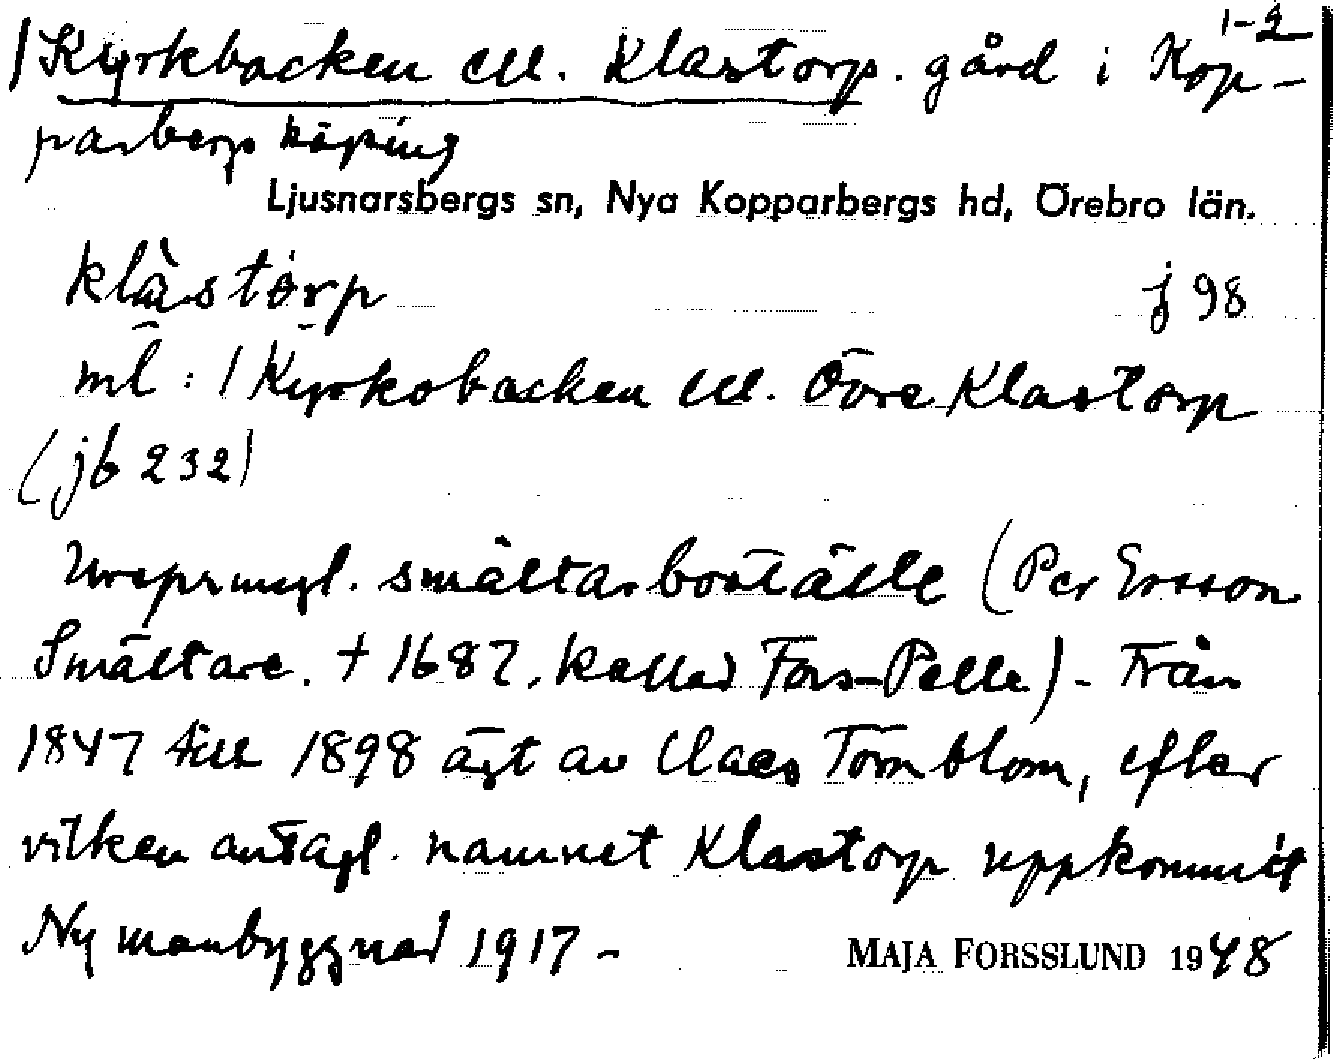 1-2
/Kyrkbacken ell. Klastorp. gård i Kop-
parbergs köping
Ljusnarsbergs sn, Nya Kopparbergs hd, Örebro län.
klàstórp j 98
ml : / Kyrkobacken ell. Övre Klastorp
(jb 232)
Ursprungl. smältarboställe (Per Ersson
Smältare. † 1687, kallad Fors-Pelle) - Från
1847 till 1898 ägt av Claes Törnblom, efter
vilken antagl. namnet Klastorp uppkommit
Ny manbyggnad 1917 -
MAJA FORSSLUND 1948